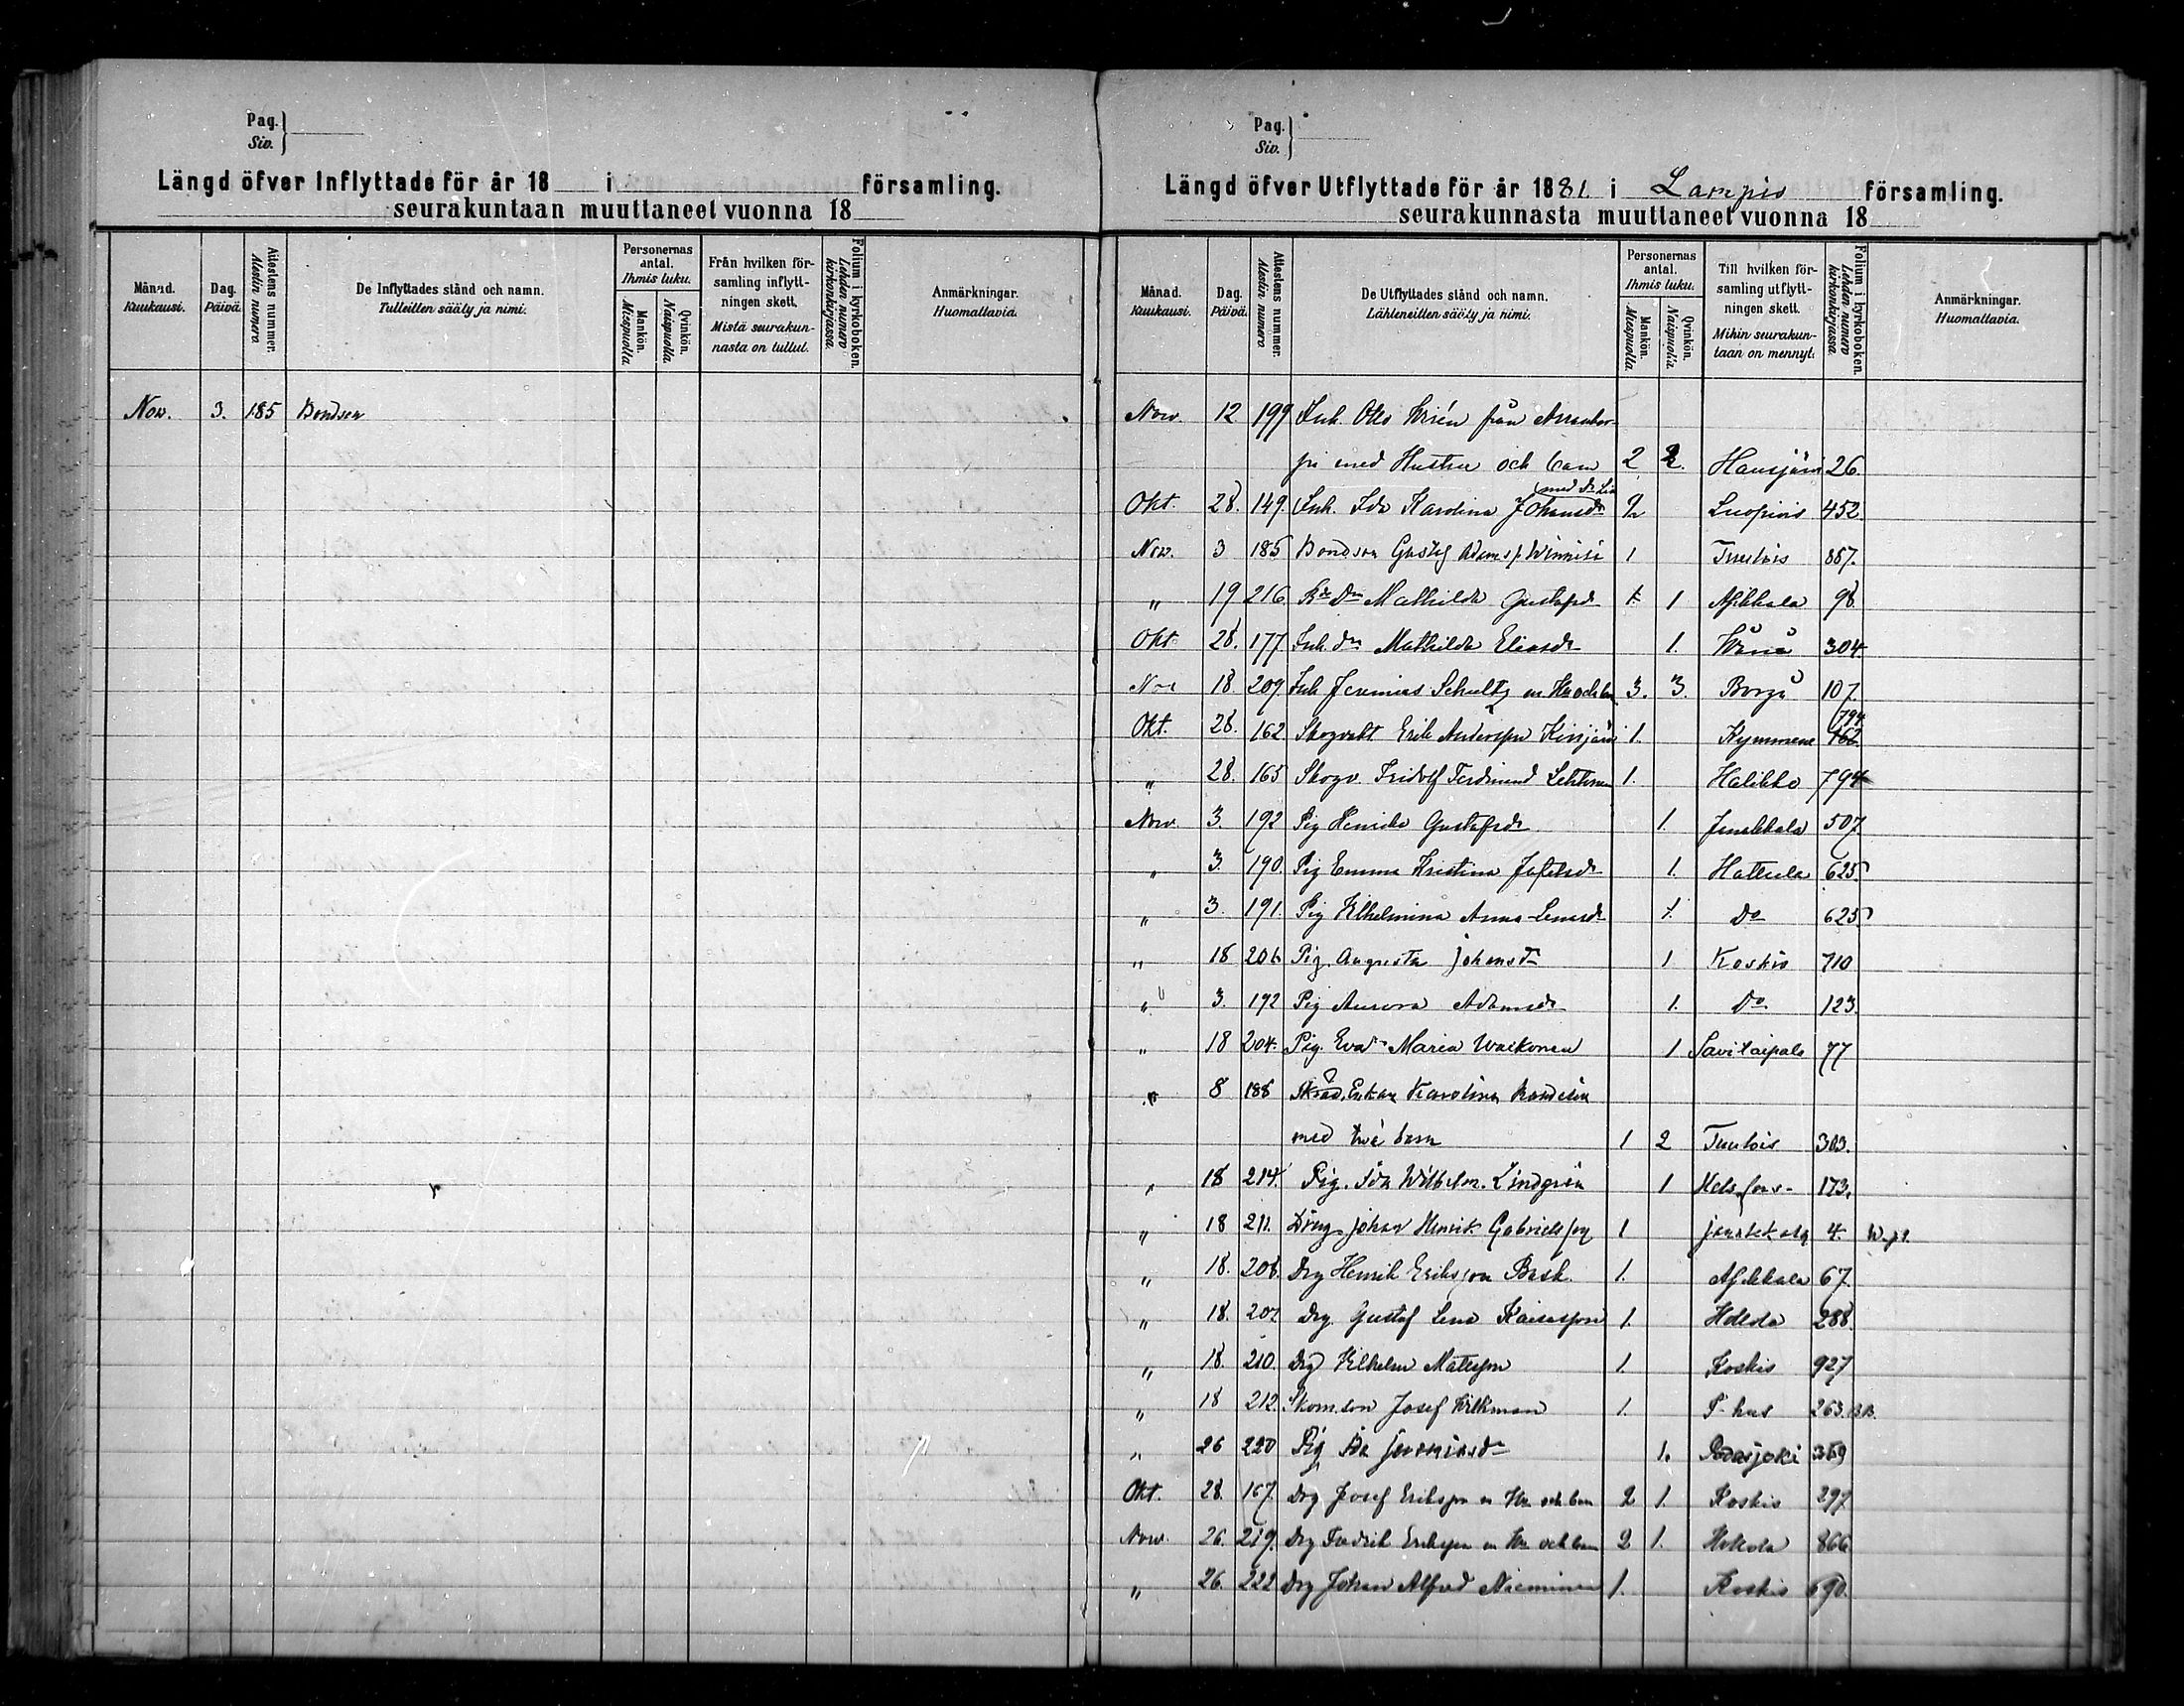 Pag.
Siv.
Längd öfver Inflyttade för år 18 i församling.
seurakuntaan muuttaneet vuonna 18
Månad.
Kuukausi.
Dag.
Päivä.
Attestens nummer.
Atestin numero
De Inflyttades stånd och namn.
Tulleitten sääty ja nimi.
Personernas antal.
Ihmis luku.
Mankön.
Miespuolla
Qvinkön.
Naispuolla
Från hvilken för-
samling inflytt-
ningen skett.
Mistä seurakun-
nasta on tullut.
Folium i kyrkoboken.
Lehden numero kirkonkirjassa.
Anmärkningar.
Huomattavia.
Nov. 3. 185 Bondson
Pag.
Siv.
Längd öfver Utflyttade för år 1881. i Lampis församling.
seurakunnasta muuttaneet vuonna 18
Månad.
Kuukausi.
Dag.
Päivä.
Attestens nummer.
Atestin numero
De Utflyttades stånd och namn.
Lähteneitten sääty ja nimi.
Personernas antal.
Ihmis luku.
Mankön.
Miespuolla.
Qvinkön.
Naispuolla
Till hvilken för-
samling utflytt-
ningen skett.
Mihin seurakun-
taan on mennyt.
Folium i kyrkoboken.
Lehden numero kirkonkirjassa.
Anmärkningar.
Huomattavia.
Nov. 12 199 Inh. Otto från
med Hustru och barn 2 2. Hausjärvi 26.
Okt. 28. 149. Inh. Ida Karolina Johansdr 2 Luopiois 452.
Nov. 3 185 Bondson Gustaf Adams s. 1 Tuulois 887.
" 19 216 Mathilda Gustafsd 1 Asikkala 98
Okt. 28. 177 Inh. dr Mathilda Eliasdr 1. Wånå 304
Nov 18. 209. Inh Jeremias Schultz m Hu och barn 3. 3. Borgå 107
Okt. 28. 162 Skogvakt. Erik Andersson 1. Kymmene 794 162
" 28. 165 Skogv. Fridolf Ferdinand Lehtinen 1. Halikko 794
Nov 3. 192 Pig Henrika Gustafsdr 1. Janakkala 507
" 3. 190. Pig Emma Kristina 1. Hattula 625
" 3. 191. Pig Wilhelmina Anna-Lenasdr 1. Do 625
" 18 206 Pig. Augusta Johansdr 1 Koskis 710
" 3. 192 Pig Aurora Adamsdr 1. Do 123
" 18 204. Pig. Eva Maria Waekonen 1 Savitaipale 77
" 8 188 Enkan Karolina
med två barn 1 2 Tuulois 303.
" 18 214. Pig. Ida Wilhelm. Lindgrén 1 Helsfors- 173.
" 18 211. Dräng Johan Henrik Gabrielsson 1 Janakkala 4.
" 18. 208. Drg Henrik Eriksson Bask 1. Asikkala 67.
" 18. 207 Drg. Gustaf Lena Kaisasson 1. Hollola 288.
" 18. 210. Drg Wilhelm Matsson 1. Koskis 927
" 18 212. Skom.son Josef Wilkman 1. T-hus 263. BB.
" 26 220 Pig Ida Jeremiasdr 1. Padasjoki 369
Okt. 28. 167. Drg Josef Eriksson m Hu och barn 2 1. Koskis 297
Nov. 26. 219. Drg Fredrik Eriksson m Hu och barn 2 1. Hollola 866
" 26. 222 Drg Johan Alfred Nieminen 1. Koskis 690.